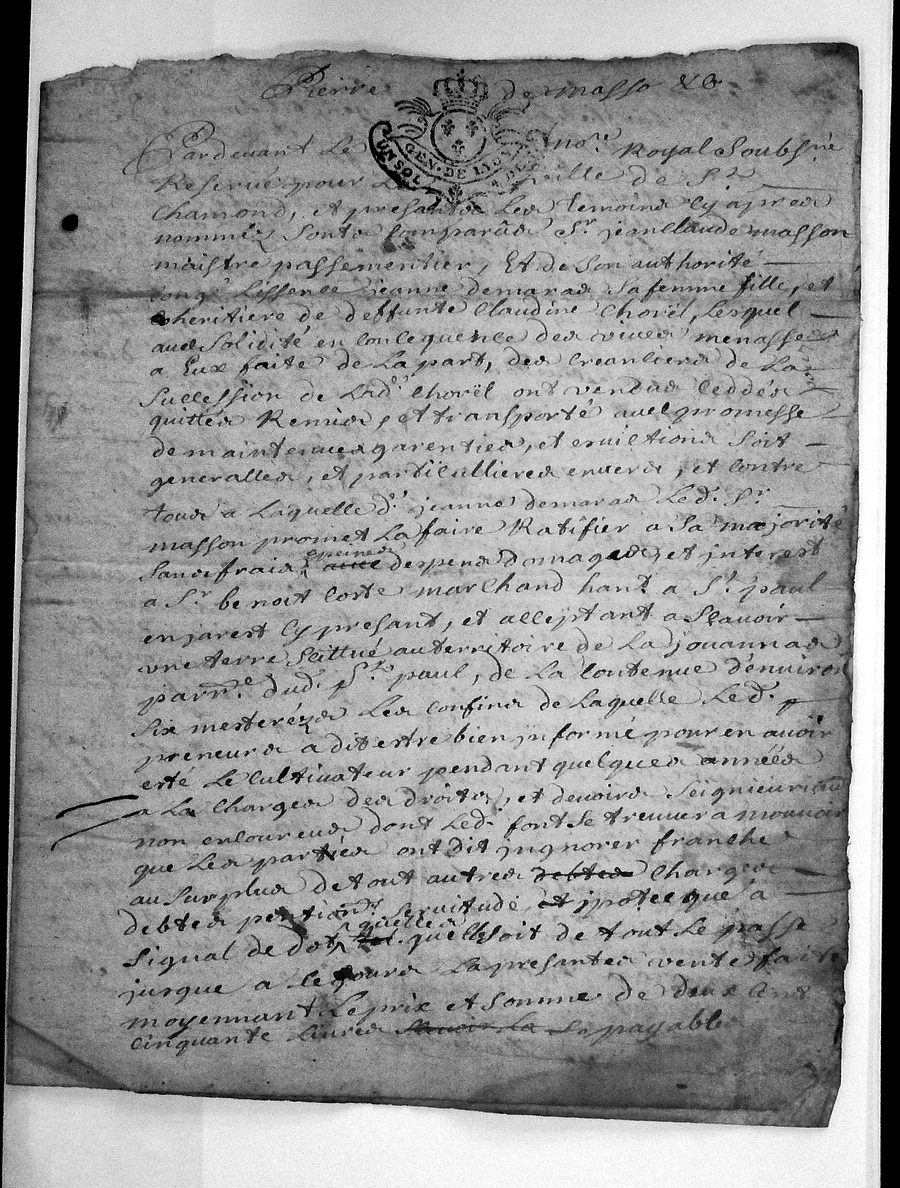 Pierre de masso
GEN. DE LYON
UN SOL 4 D.
Pardevant Le no.re Royal Soubs.né
Reservé pour La ville de S.t
Chamond, et presants Les temoins Cy apres
nommez Sonts Comparus S.r jean Claude masson
maistre passementier, Et de Son authorité
Congé Lissence jeanne demaras Sa femme fille, et
heritiere de deffunte Claudine Choröl, Lesquels
avec Solidité en Consequence des vives menasses
a Eux faite de La part, des Creanciers de La
Succession de Lad. Choröl ont vendus Ceddés
quittés Remis, et transporté avec promesse
de maintenues garenties, et evictions Soit
generalles, et particullieres envers, et Contre
tous a Laquelle d. jeanne demaras Led. S.r
masson promet La faire Ratifier a Sa majorité
Sans frais, a peines avec despens domages, et jnterest
a S.r benoit Coste marchand hant a S.t paul
en jarest Cy presant, et acceptant a Scavoir
vne terre Scittué au territoire de La jouannas
parr.e dud. S.t paul, de La Contenue d'environ
Six mesterézes Les confins de Laquelle Le d.
preneurs a dit estre bien jnformé pour en avoir
esté Le Cultivateur pendant quelques années
a La Charges des droits, et devoirs Seigneuriaux
non encourus dont Led. font Se treuvera mouvoir
que Les parties ont dit jngnorer franche
au Surplus de tout autres debtes Charges
debtes pention servitude et ypotecque a
Signal de dot quelles quelle Soit de tout Le passe
jusque a Ce jours La presantes vente faite
moyennant Le prix et Somme de deux Cent
Cinquante Livres Scavoir La payable